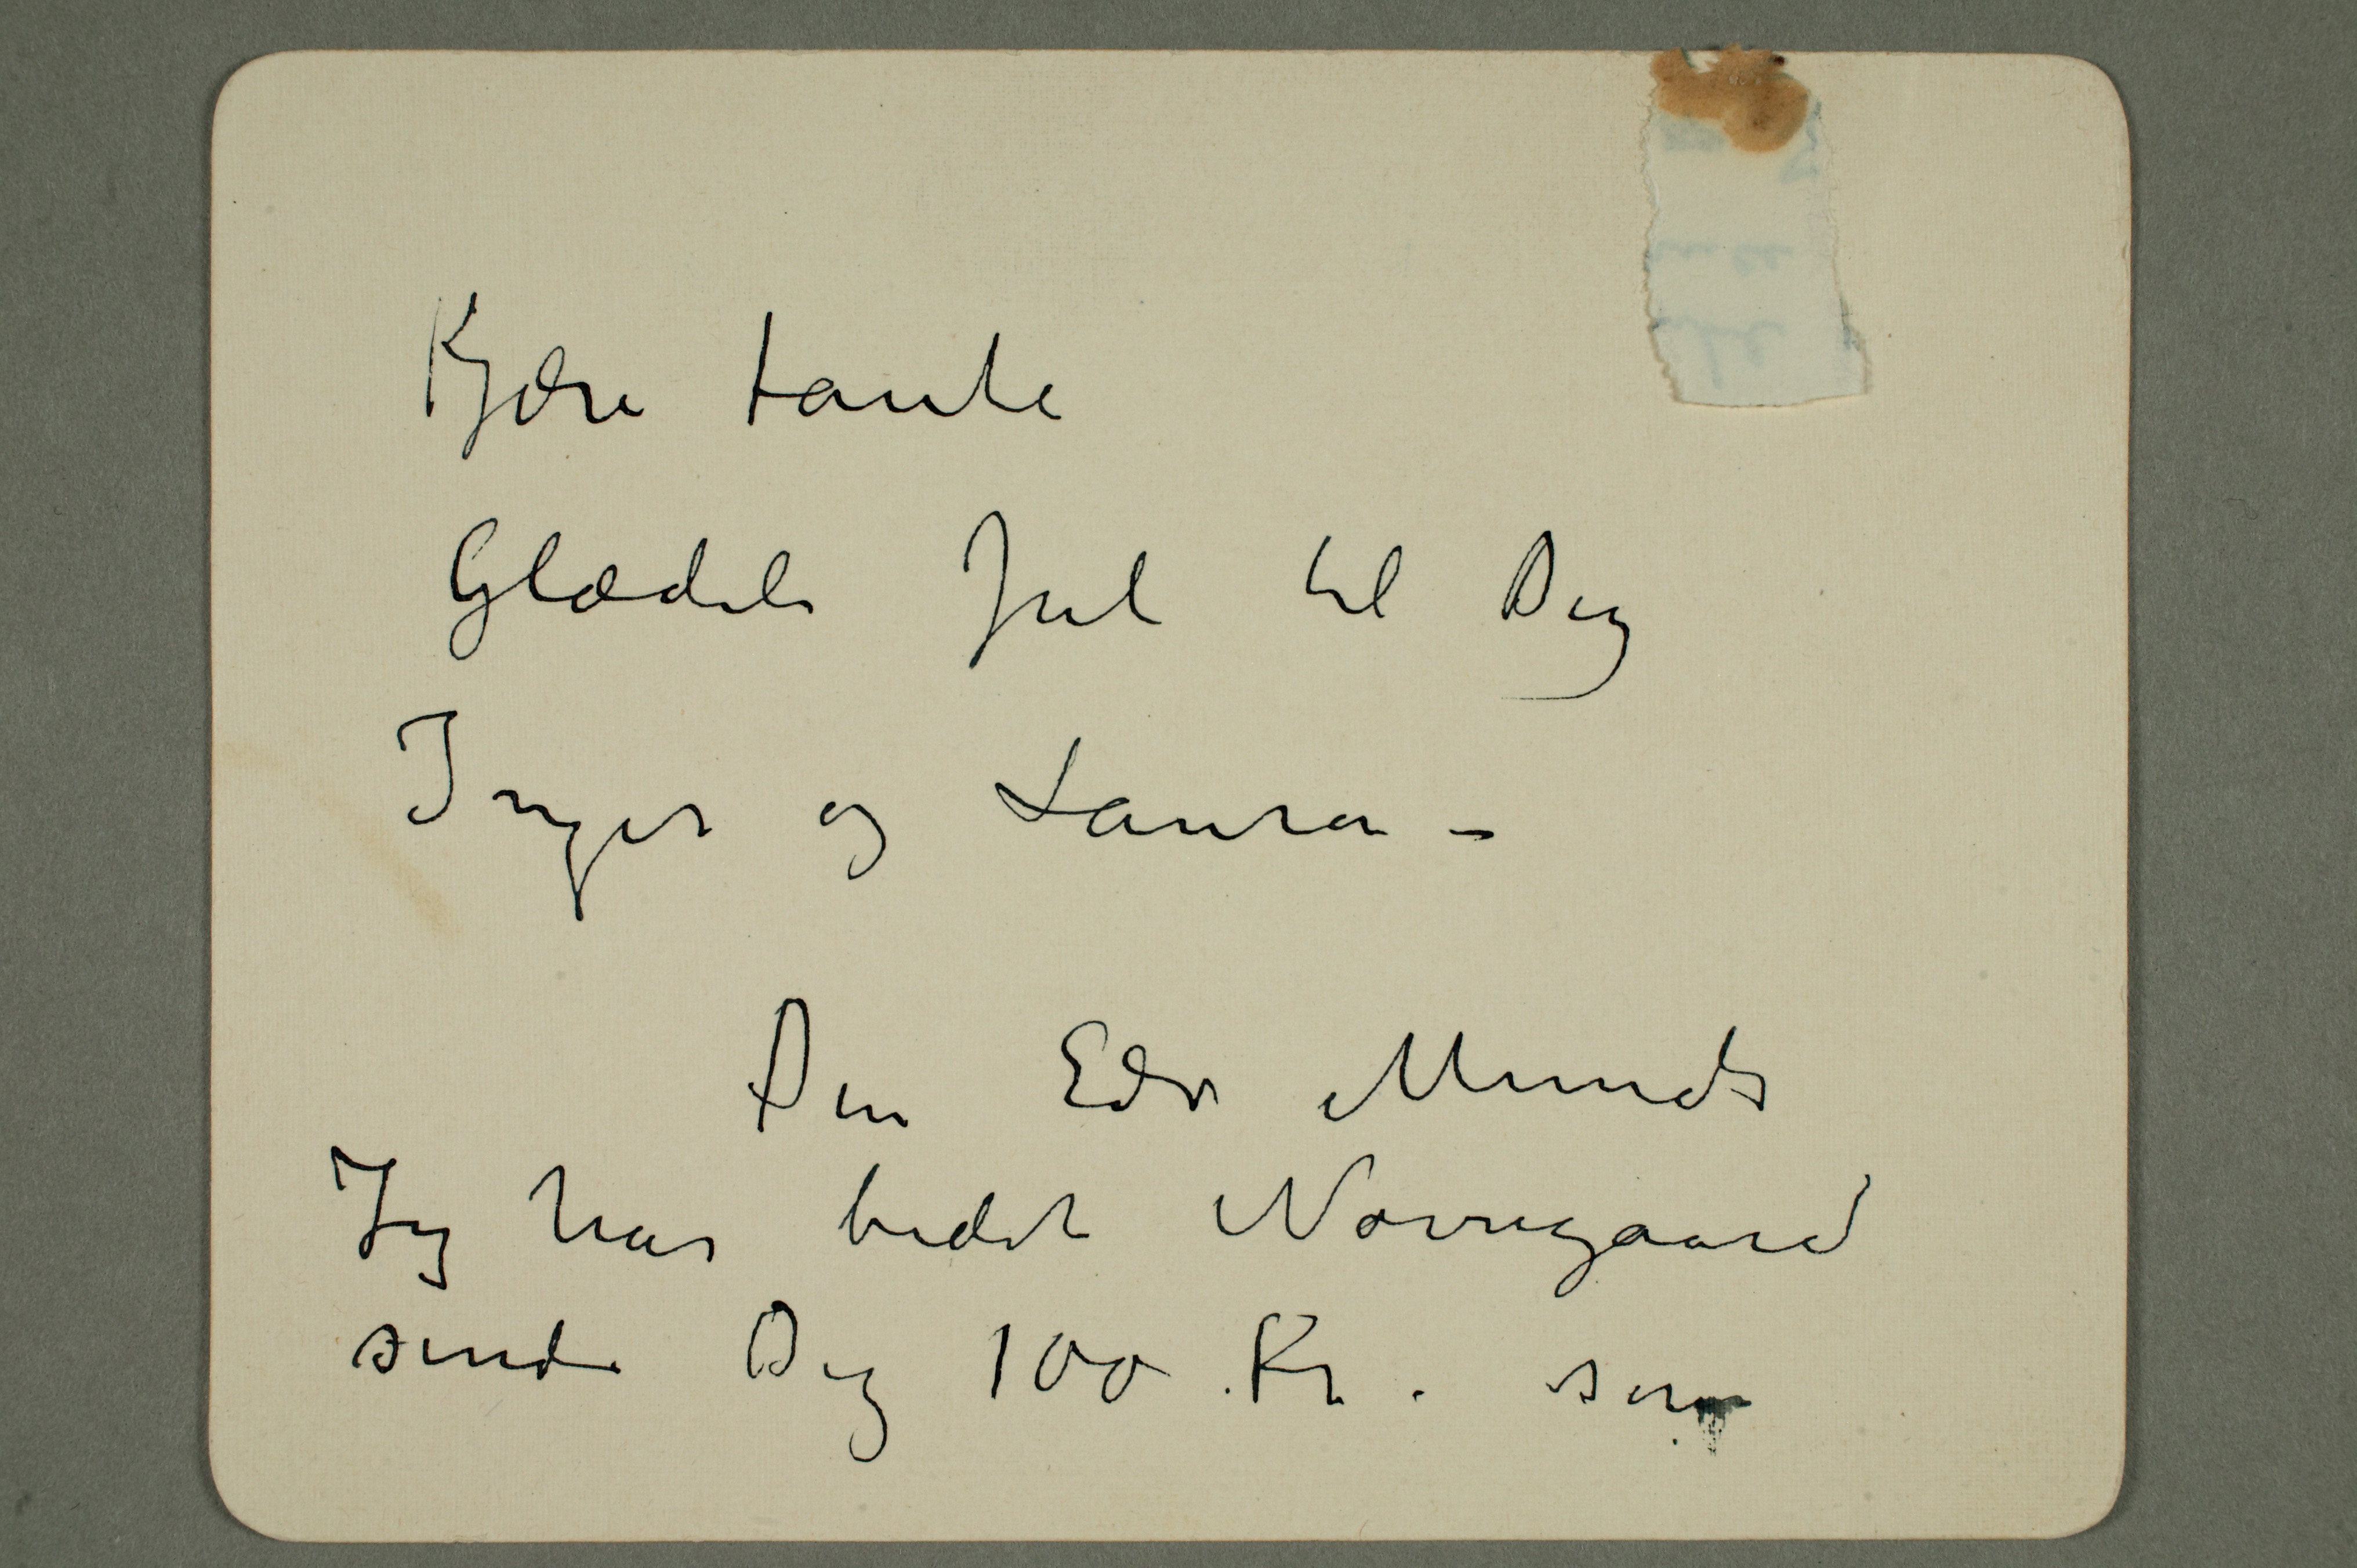 Kjære tante
Glædeli Jul til Dig
Inger og Laura –
Din Edv Munch
Jeg har bedet Nørregaard
sende Dig 100 Kr. som